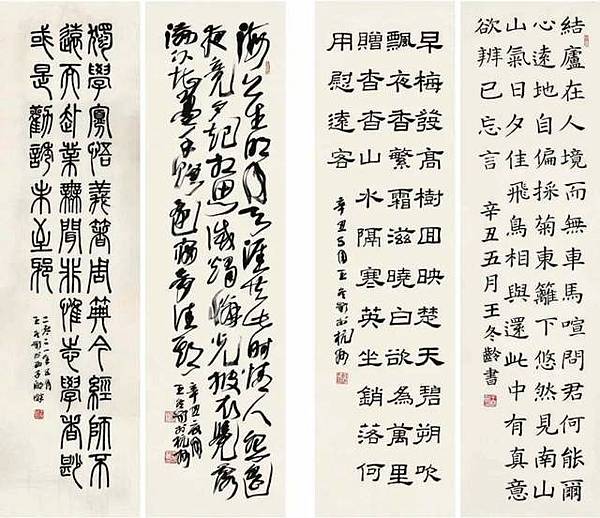 結廬在人境而無車馬喧問君何能爾
心遠地自偏採菊東籬下悠然見南山
山氣日夕佳飛鳥相與還此中有真意
欲辨已忘言 辛丑五月王冬齡書
早梅發高樹囬映楚天碧朔吹
飄夜香繁霜滋曉白欲為萬里
贈杳杳山水隔寒英坐銷落何
用慰遠客
辛丑五月王冬齡於杭州
海上生明月天涯共此時情人怨遙
夜竟夕起相思滅燭憐光披衣覺露
滋不堪盈手贈還寢夢佳期
王冬齡於杭州
獨學寡悟義著周典今經師不
遠而赴業無聞非惟志學者尠
或是勸誘未至邪
二〇二一年五月
王冬齡於西子湖畔